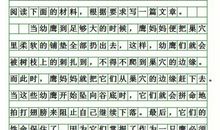 阅读下面的材料，根据要求写一篇文章。
当幼鹰到足够大的时候，鹰妈妈便把巢穴
里柔软的铺垫全部扔出去，这样，幼鹰们就会
被树枝上的刺扎到，不得不爬到巢穴的边缘。
而此时，鹰妈妈就把它们从巢穴的边缘赶下去。
当这些幼鹰开始坠向谷底时，它们就会拼命地
拍打翅膀来阻止自己继续下落。最后，它们的